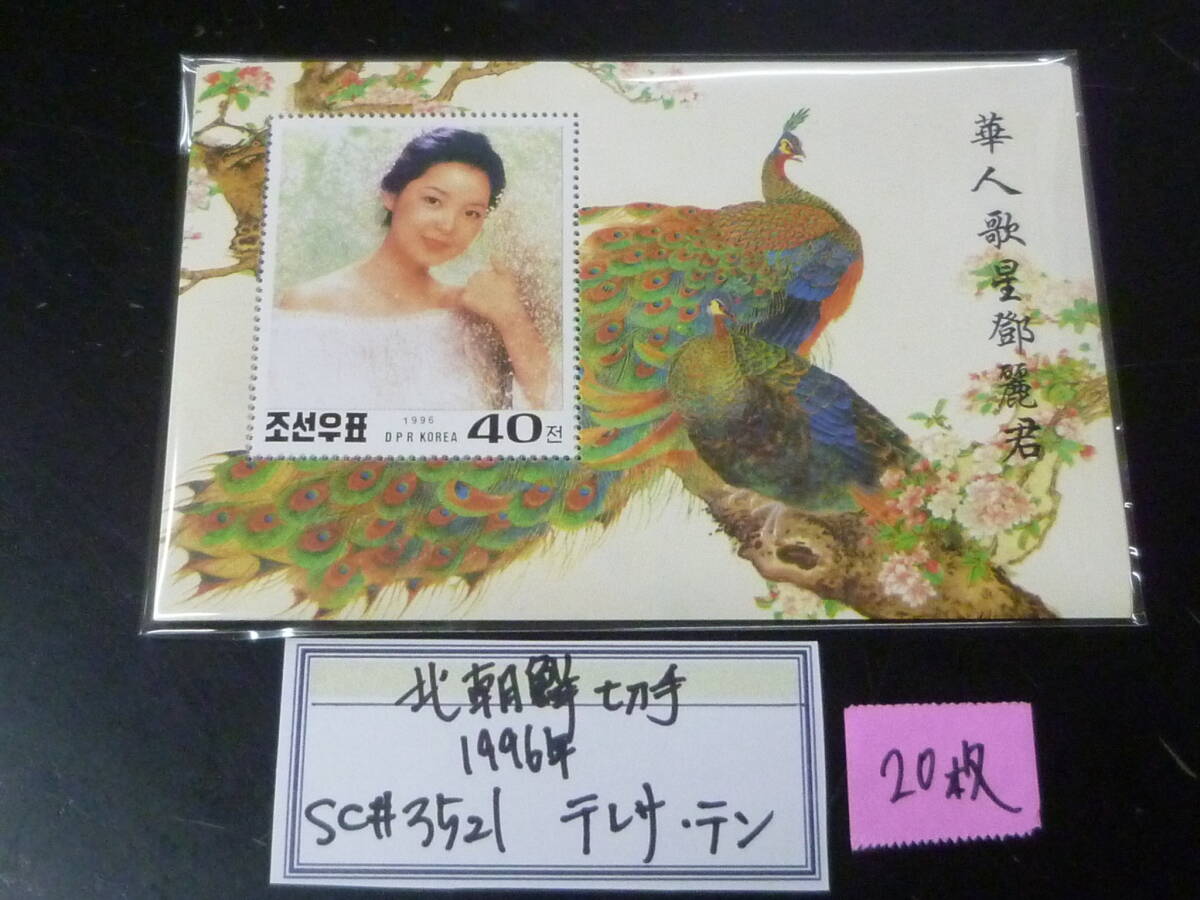 華人歌星鄧麗君
조선우표
1996
DPR KOREA
40전
北朝鮮切手
1996年
SC#3521 テレサ・テン
20枚